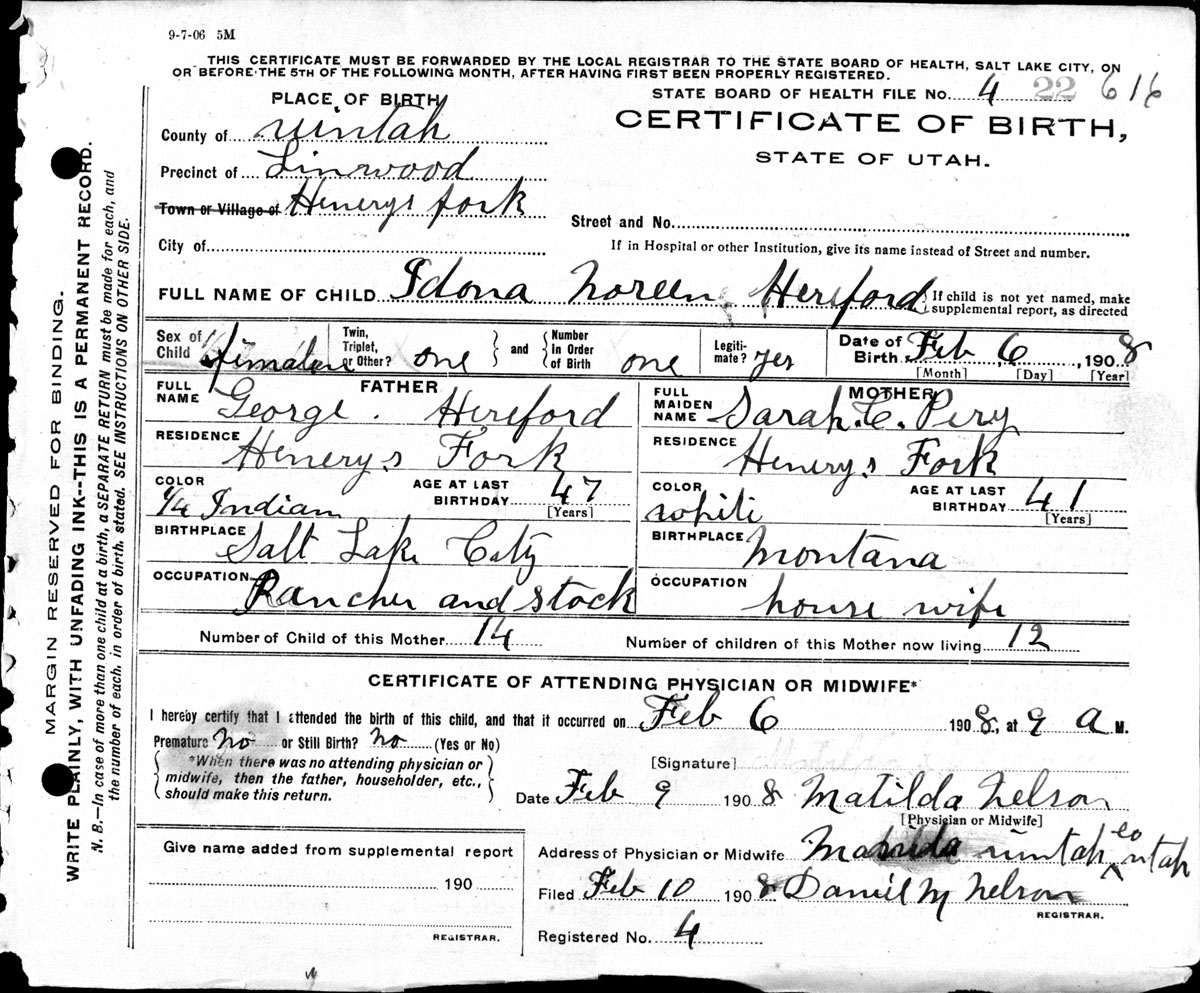 9-7-06 5M
THIS CERTIFICATE MUST BE FORWARDED BY THE LOCAL REGISTRAR TO THE STATE BOARD OF HEALTH, SALT LAKE CITY, ON
OR BEFORE THE 5TH OF THE FOLLOWING MONTH, AFTER HAVING FIRST BEEN PROPERLY REGISTERED.
PLACE OF BIRTH
STATE BOARD OF HEALTH FILE No. 4 22 616
County of uintah
CERTIFICATE OF BIRTH,
STATE OF UTAH.
Precinct of Linwood
Town or Village of Henerys fork
Street and No.
City of
If in Hospital or other Institution, give its name instead of Street and number.
FULL NAME OF CHILD Idona Noreen Hereford
{If child is not yet named, make
supplemental report, as directed
Sex of Child fimale
Twin, Triplet, or Other? one and Number In Order of Birth one
Legitimate? yes
Date of Birth Feb 6, 1908
[Month] [Day] [Year]
FATHER
FULL NAME George Hereford
RESIDENCE Henerys Fork
COLOR 1/4 Indian
AGE AT LAST BIRTHDAY 47
[Years]
BIRTHPLACE Salt Lake City
OCCUPATION Rancher and stock
MOTHER
FULL MAIDEN NAME Sarah. C. Pery
RESIDENCE Henerys Fork
COLOR whiti
AGE AT LAST BIRTHDAY 41
[Years]
BIRTHPLACE Montana
OCCUPATION house wife
Number of Child of this Mother 14
Number of children of this Mother now living 12
CERTIFICATE OF ATTENDING PHYSICIAN OR MIDWIFE*
I hereby certify that I attended the birth of this child, and that it occurred on Feb 6 1908, at 9 a M.
Premature no or Still Birth? no (Yes or No)
*When there was no attending physician or
midwife, then the father, householder, etc.,
should make this return.
[Signature]
Date Feb 9 1908 Matilda Nelson
[Physician or Midwife]
Give name added from supplemental report
190
REGISTRAR.
Address of Physician or Midwife uintah co utah
Filed Feb 10 1908 Daniel M Nelson
REGISTRAR.
Registered No. 4
MARGIN RESERVED FOR BINDING.
WRITE PLAINLY, WITH UNFADING INK--THIS IS A PERMANENT RECORD.
N. B.—In case of more than one child at a birth, a SEPARATE RETURN must be made for each, and
the number of each, in order of birth, stated. SEE INSTRUCTIONS ON OTHER SIDE.